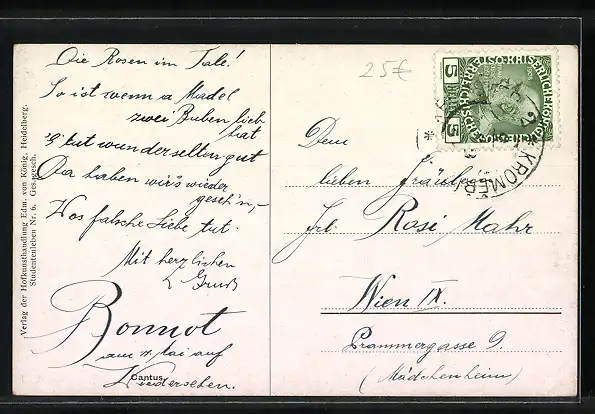 Die Rosen im Tale!
So ist wenn a Madel
zwei Buben lieb
hat
's tut wunderselten gut
Da haben wir's wieder
geseh'n,-
Was falsche Liebe tut.
Mit herzlichen
Gruß
Bonnot
am 11. Mai auf
Wiedersehen.
Cantus.
Verlag der Hofkunsthandlung Edm. von König, Heidelberg.
Studentenleben Nr. 6. Ges. gesch.
25€
5
5
KROMĚŘ
Dem
lieben Fräulein
Frl. Rosi Mahr
Wien IX.
Prammergasse 9.
(Mädchenheim)